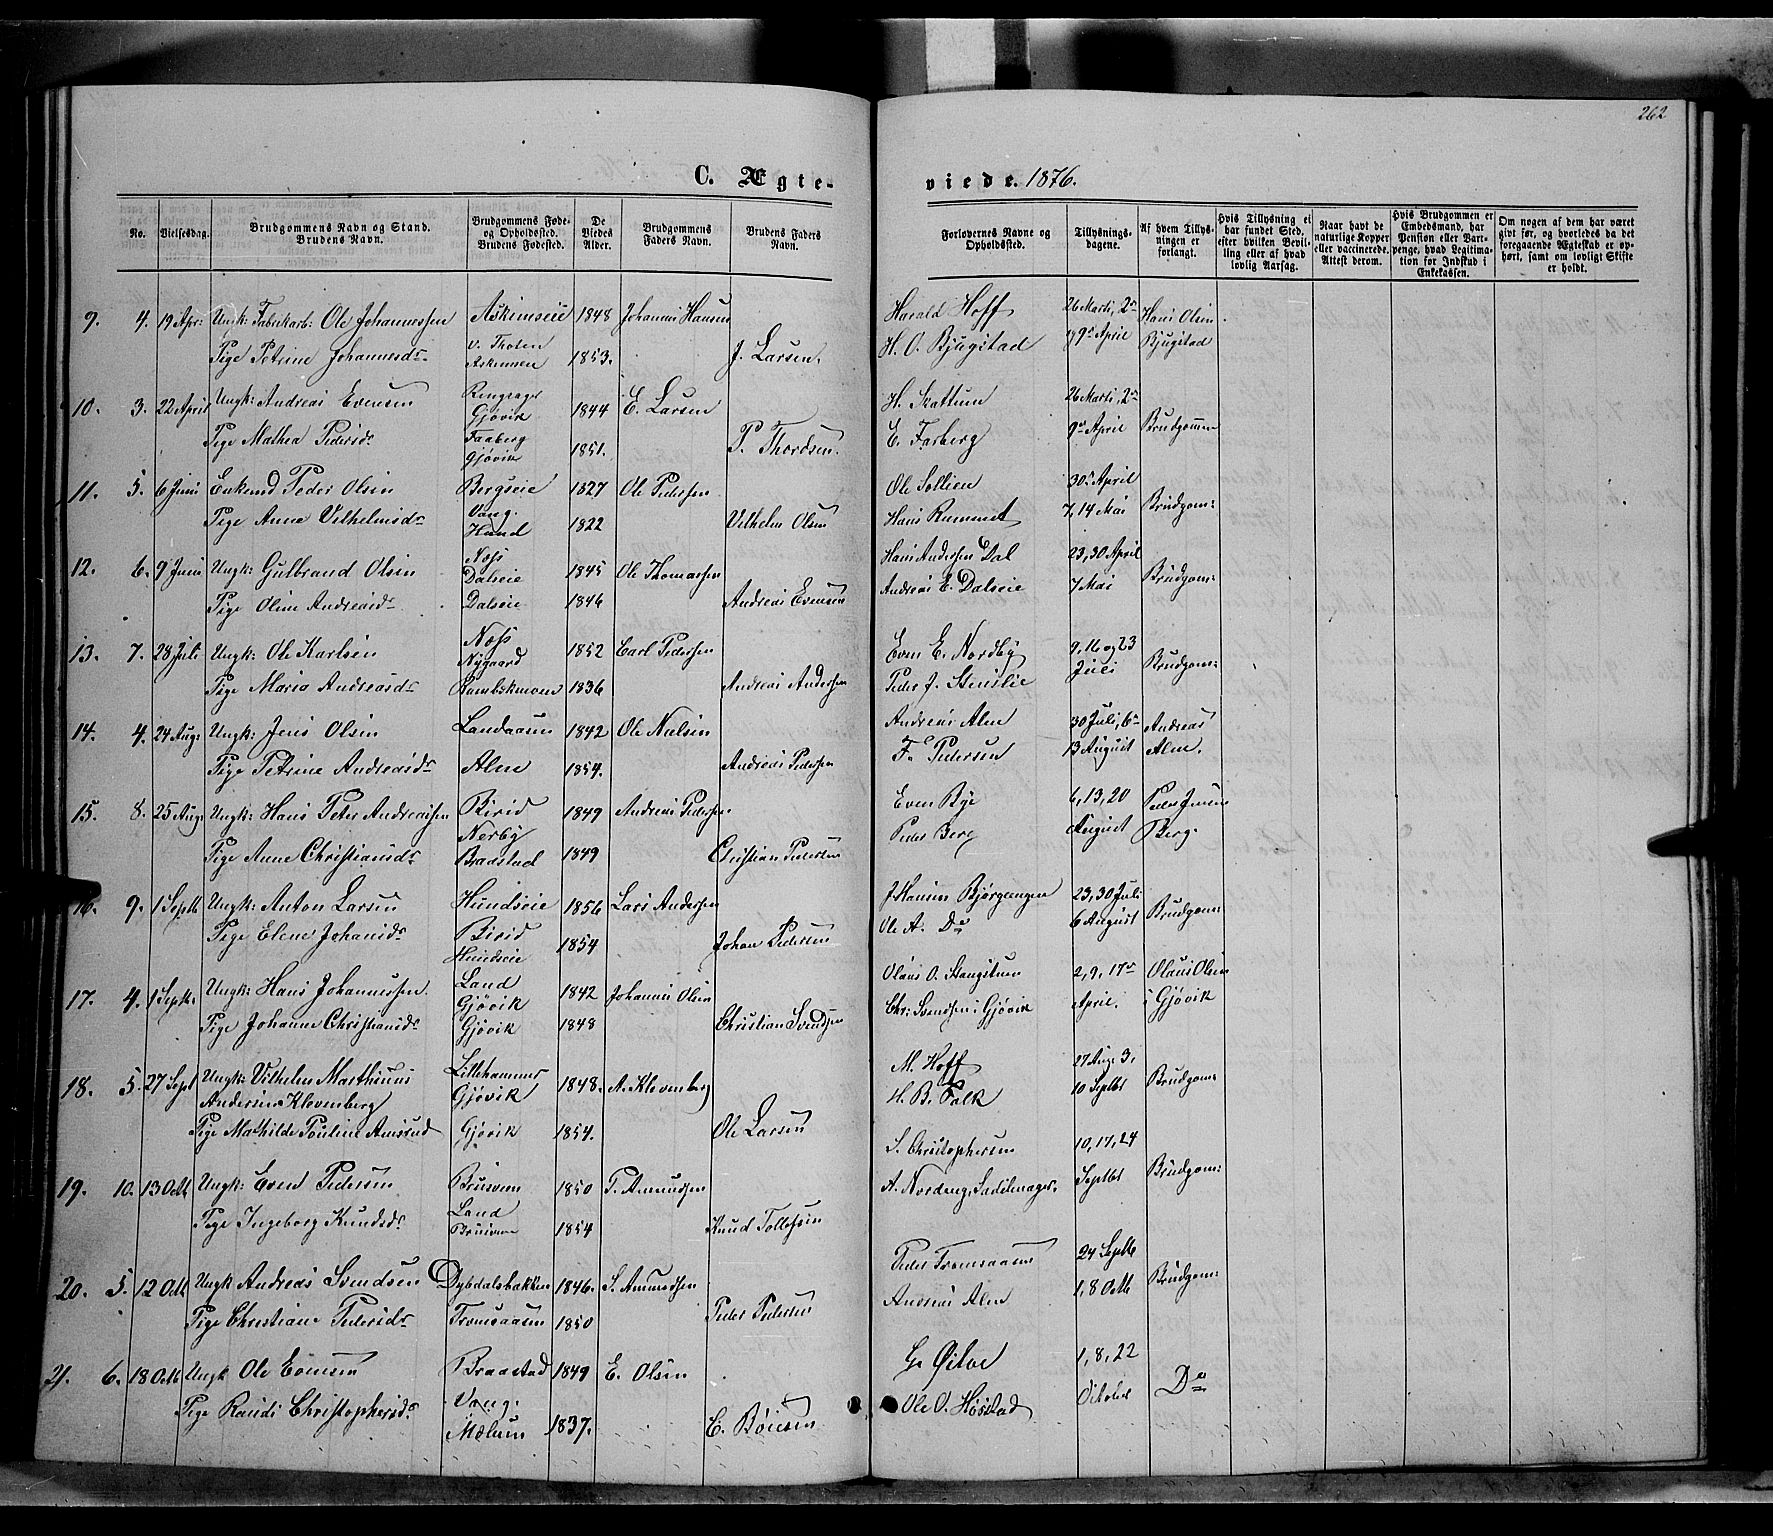 262
C. Ægte- viede. 1876.
No. Vielsesdag. Brudgommens Navn og Stand. Brudens Navn. Brudgommens Føde- og Opholdssted. Brudens Fødested. De Viedes Alder. Brudgommens Faders Navn. Brudens Faders Navn. Forlovernes Navne og Opholdssted. Tillysningsdagene. Af hvem Tillysningen er forlangt. Hvis Tillysning ei har fundet Sted, efter hvilken Bevilling eller af hvad lovlig Aarsag. Naar havt de naturlige Kopper eller vaccinerede. Attest derom. Hvis Brudgommen er Embedsmand, har Pension eller Vartpenge, hvad Legitimation for Indskud i Enkekassen. Om nogen af dem har været givt før, og hvorledes da det foregaaende Ægteskab er ophørt, samt om lovligt Skifte er holdt.
9. 4. 19 Apr: Ungk: Fabrikarb: Ole Johannessen Askimseie 1848 Johannes Hansen Harald Hoff 26 Marts, 2den Hans Olsen
Pige Petrine Johannesdr v. Thoten Askimseie 1853. J. Larsen. H. O. Bjugstad og 9de April Bjugstad
10. 3. 22 April Ungk: Andreas Evensen Ringsager Gjøvik 1844 E. Larsen H. Skattum 26 Marts, 2den
Pige Mathea Pedersdr Faaberg Gjøvik 1851. P. Thordsen. E. Farberg 9de April Brudgommen
11. 5. 6 Juni Enkemd Peder Olsen Bergseie 1827 Ole Pedersen Ole Sollien 30te April
Pige Anne Vilhelmsdr Vang. Hund 1822 Vilhelm Olsen Hans Rummet 7, 14 Mai Brudgom:
12. 6. 9 Juni Ungk: Gulbrand Olsen Næss Dalseie 1845 Ole Thomassen Hans Andersen Dal 23, 30 April
Pige Oline Andreasdr Dalseie 1846 Andreas Evensen Andreas E. Dalseie 7 Mai Brudgom:
13. 7. 28 Juli Ungk: Ole Karlsen Næss Nygaard 1852 Carl Pedersen Even E. Nordby 9, 16 og 23
Pige Maria Andreasdr 1836 Andreas Andersen Peder J. Stenslie Juli Brudgom:
14. 4. 24 Aug: Ungk: Jens Olsen Landaasen 1842 Ole Nielsen Andreas Alm 30 Juli, 6te Andreas
Pige Petrine Andreasdr Alm 1854. Andreas Pedersen F. Pedersen 13 August Alm.
15. 8. 25 Aug: Ungk: Hans Peter Andreassen Birid Nerby 1849 Andreas Pedersen Even Bye 6, 13, 20 Peder Jensen
Pige Anne Christiansdr Braastad 1849 Christian Pedersen Peder Berg August Berg.
16. 9. 1 Septb Ungk: Anton Larsen Hundseie 1856 Lars Andersen J. Hansen Bjørgeengen 23, 30 Juli
Pige Elene Johansdr Birid Hundseie 1854 Johan Pedersen Ole A. Do 6 August Brudgom:
17. 4. 1 Septb. Ungk: Hans Johannessen. Land Gjøvik 1842 Johannes Olsen Olaus O. Stangstuen 2, 9, 17de Olaus Olsen
Pige Johanne Christiansdr Gjøvik 1848 Christian Svendsen Chr: Svendsen i Gjøvik April. i Gjøvik
18. 5. 27 Sept Ungk: Vilhelm Marthinus Lillehammer M. Hoff 27 Aug: 3,
Anderson Klovenberg Gjøvik 1848. A. Klovenberg H. B. Falk 10 Septbr Brudgom:
Pige Mathilde Pouline Amsrud Gjøvik 1854. Ole Larsen
19. 10. 13 Octb Ungk: Even Pedersen Brusveen 1850 P. Amundsen S. Christophersen 10, 17, 24
Pige Ingeborg Knudsdr Land Brusveen 1854 Knud Tollefsen A. Nordeng, Sadelmager. Septbr Brudgom:
20. 5. 12 Octb Ungk Andreas Svendsen Dybdalsbakken 1846. S. Amundsen Peder Tromsaasen 24 Septb
Pige Christiane Pedersdr Tromsaasen 1850 Peder Pedersen Andreas Alm 1, 8 Octb Brudgom:
21. 6. 18 Octb Ungk Ole Evensen Braastad 1849 E. Olsen G. Østbe 1, 8, 22
Pige Randi Christophersdr Vang. Mælum 1837. C. Boiesen Ole O. Høistad October Do